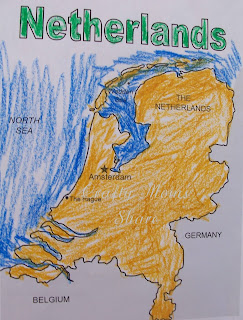 Netherlands
THE
NETHERLANDS
NORTH
SEA
Amsterdam
The Hague
Share
GERMANY
BELGIUM